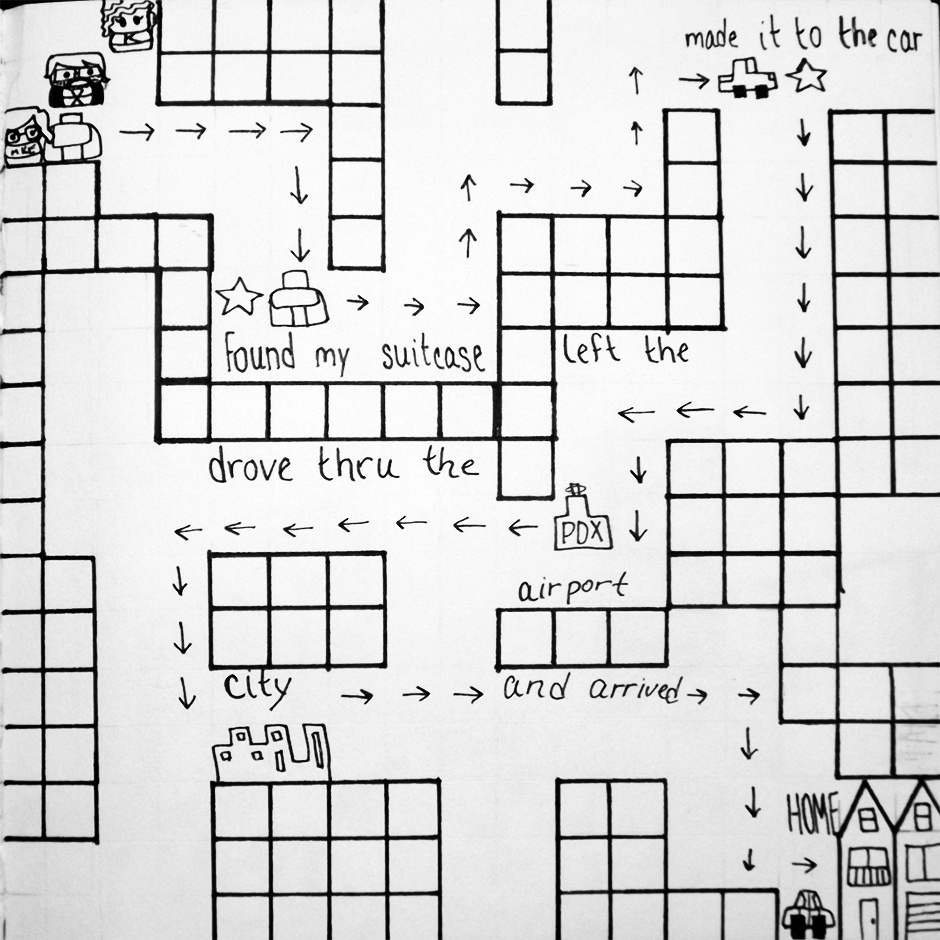 made it to the car
found my suitcase
left the
drove thru the
PDX
airport
city
and arrived
HOME